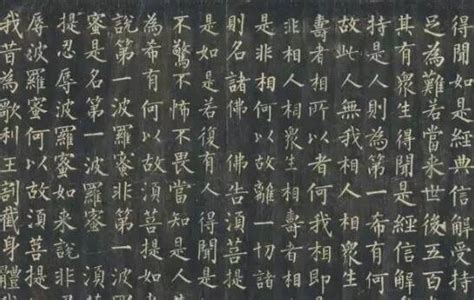 得聞如是經典信解受持
足為難若當來世後五百
其有眾生得聞是經信解
持是人則為第一希有何
故此人無我相人相眾生
壽者相所以者何我相即
非相人相眾生相壽者相
是非相何以故離一切諸
則名諸佛 佛告湏菩提
是如是若復有人得聞是
不驚不怖不畏當知是人
為希有何以故湏菩提如
說第一波羅蜜非第一波
蜜是名第一波羅蜜 湏
提忍辱波羅蜜如來說非
辱波羅蜜何以故湏菩提
我昔為歌利王割截身體